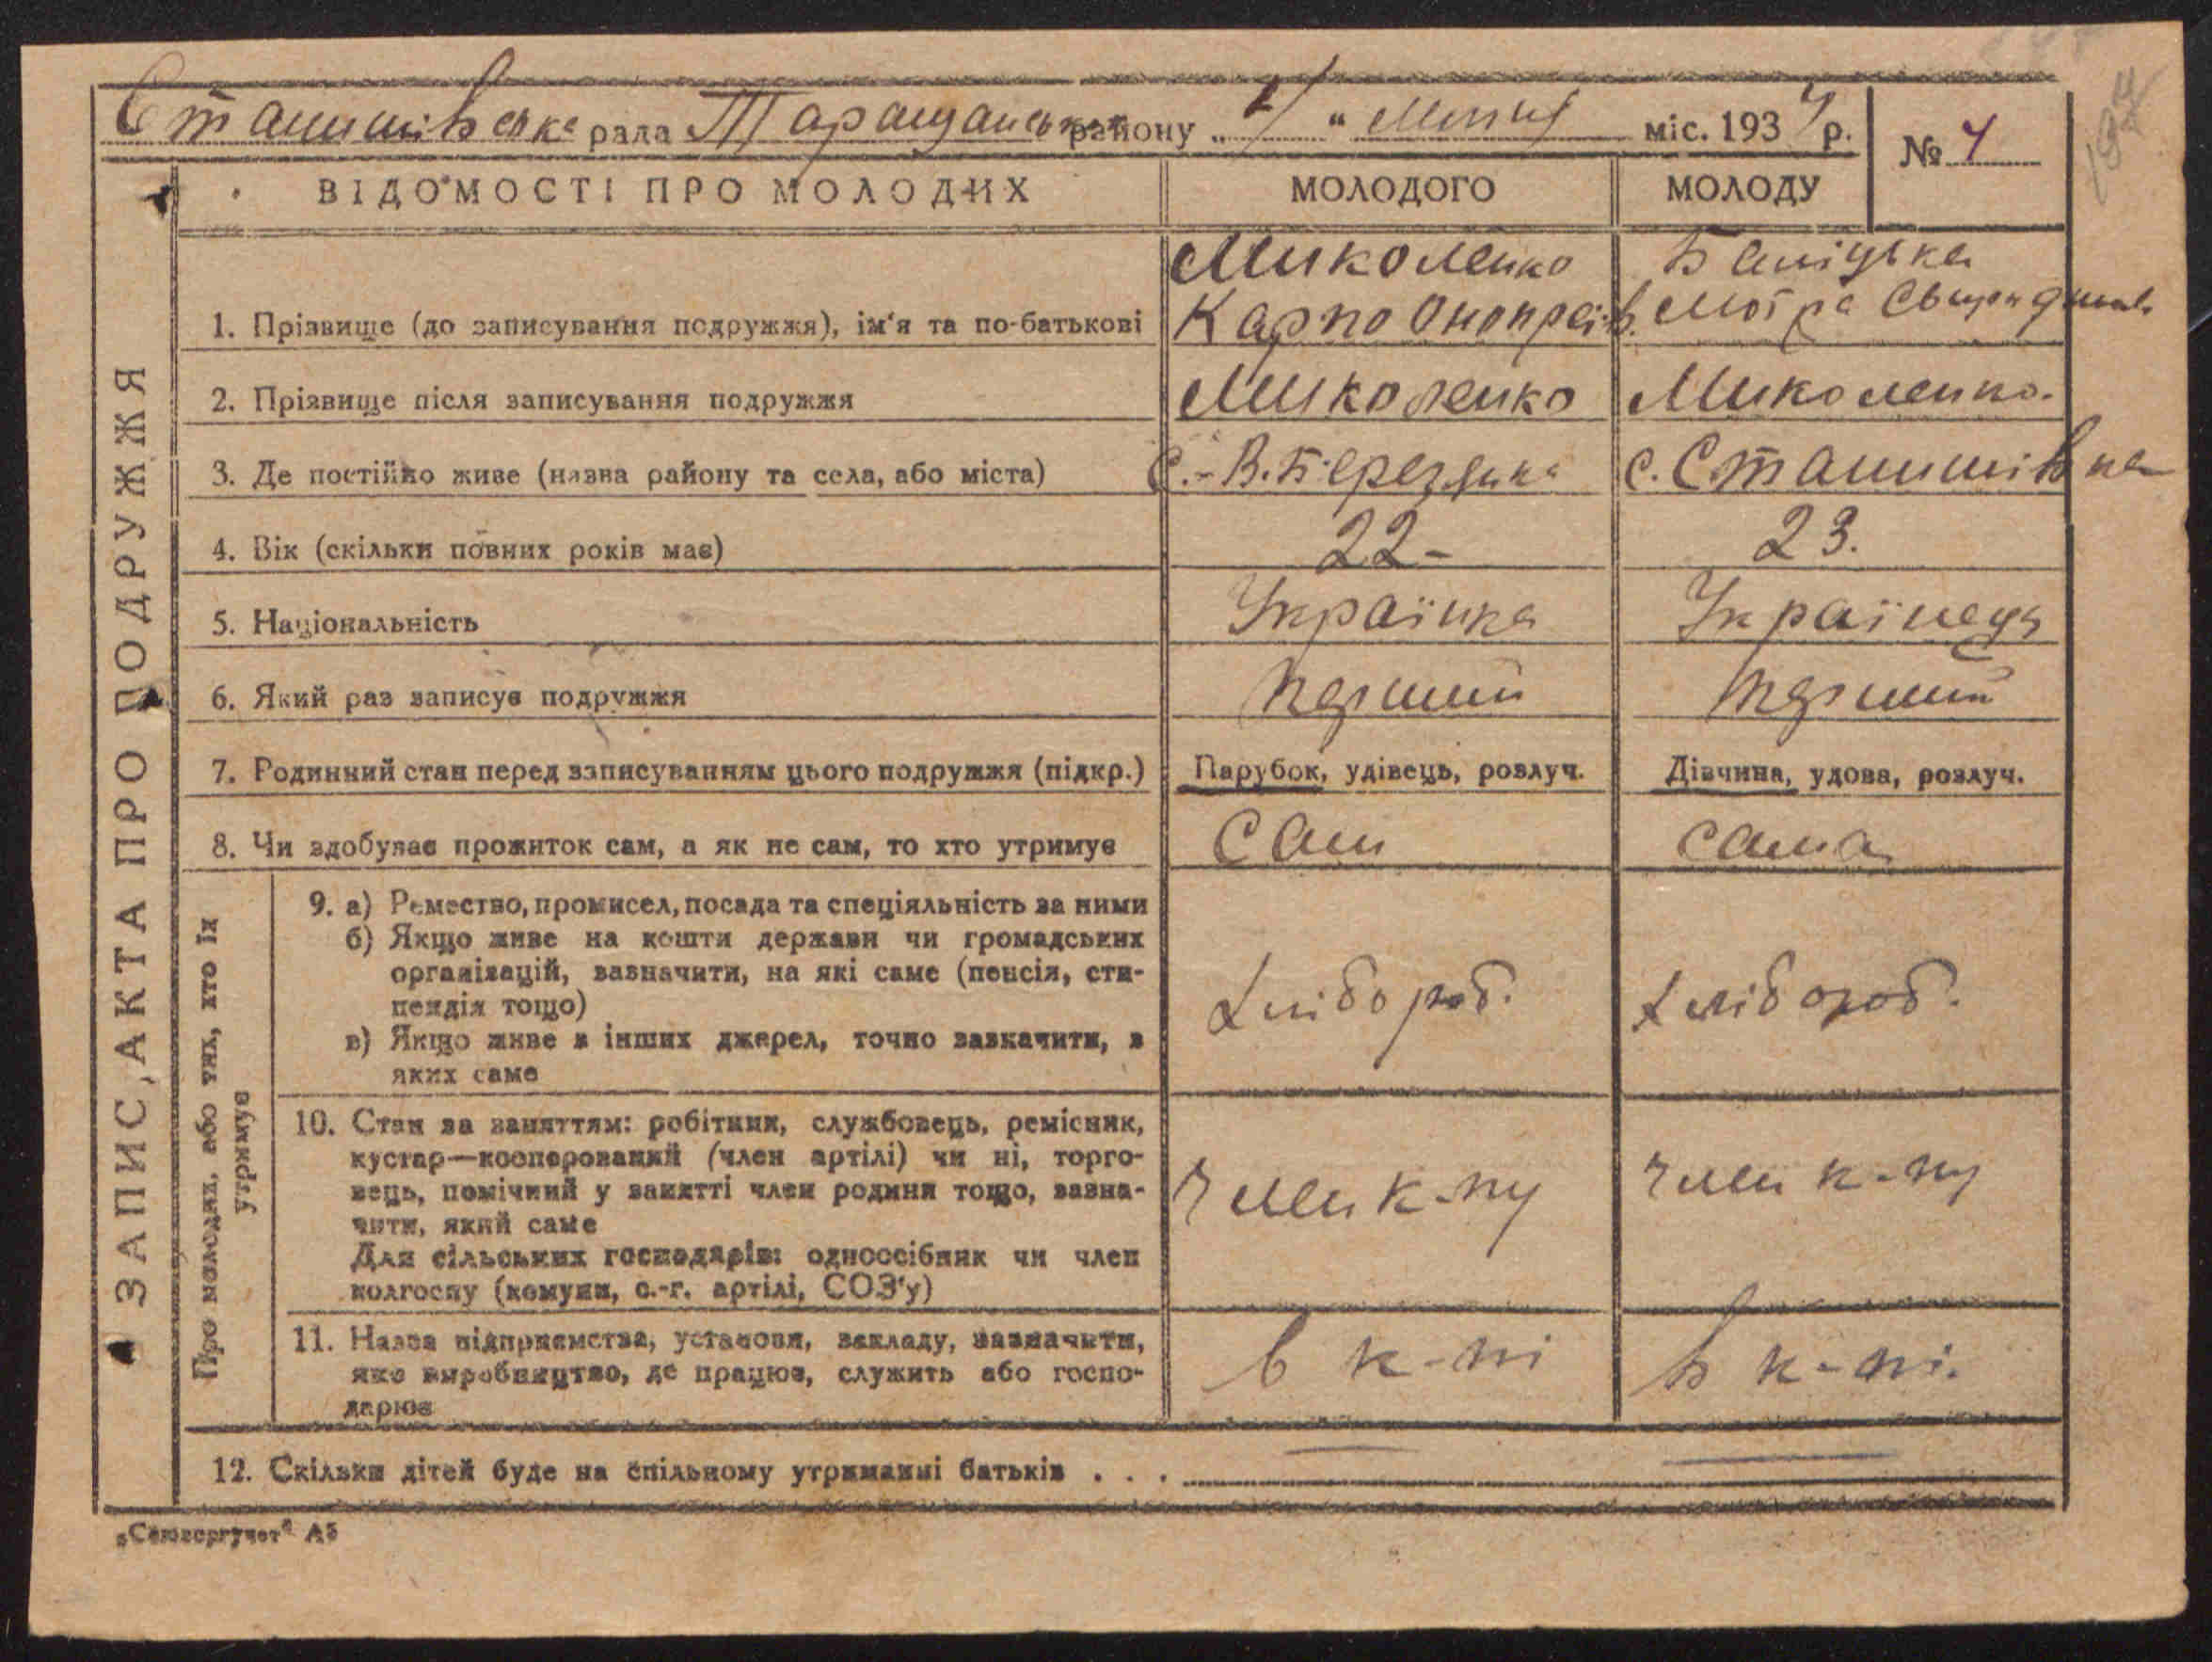 Станишівська рада Таращанського району „ “ міс. 1934 р.
№ 4
ЗАПИС АКТА ПРО ПОДРУЖЖЯ
ВІДОМОСТІ ПРО МОЛОДИХ МОЛОДОГО МОЛОДУ
1. Прізвище (до записування подружжя), ім'я та по-батькові Миколенко Карпо Онопрейов. Баліцька Мотра
2. Прізвище після записування подружжя Миколенко Миколенко.
3. Де постійно живе (назва району та села, або міста) с.-В. Березянка с. Станишівка
4. Вік (скільки повних років має) 22- 23.
5. Національність Українка Українець
6. Який раз записує подружжя перший перший
7. Родинний стан перед записуванням цього подружжя (підкр.) Парубок, удівець, розлуч. Дівчина, удова, розлуч.
8. Чи здобуває прожиток сам, а як не сам, то хто утримує сам сама
Про молодих, або тих, хто їх утримує
9. а) Ремество, промисел, посада та спеціяльність за ними
б) Якщо живе на кошти держави чи громадських
організацій, зазначити, на які саме (пенсія, сти-
пендія тощо)
в) Якщо живе з інших джерел, точно зазначити, з
яких саме
хлібороб. хлібороб.
10. Стан за заняттям: робітник, службовець, ремісник,
кустар—кооперований (член артілі) чи ні, торго-
вець, помічний у занятті член родини тощо, зазна-
чити, який саме
Для сільських господарів: одноосібник чи член
колгоспу (комуни, с.-г. артілі, СОЗ'у)
член к-пу член к-пу
11. Назва підприємства, установи, закладу, зазначити,
яке виробництво, де працює, служить або госпо-
дарює
в к-пі в к-пі.
12. Скільки дітей буде на спільному утриманні батьків . . .
„Союзоргучет“ А5